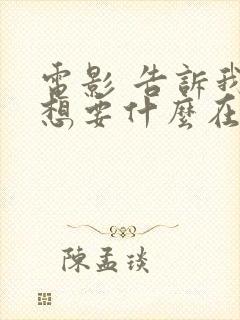 電影 告訴我
想要什麼在
陳孟琰